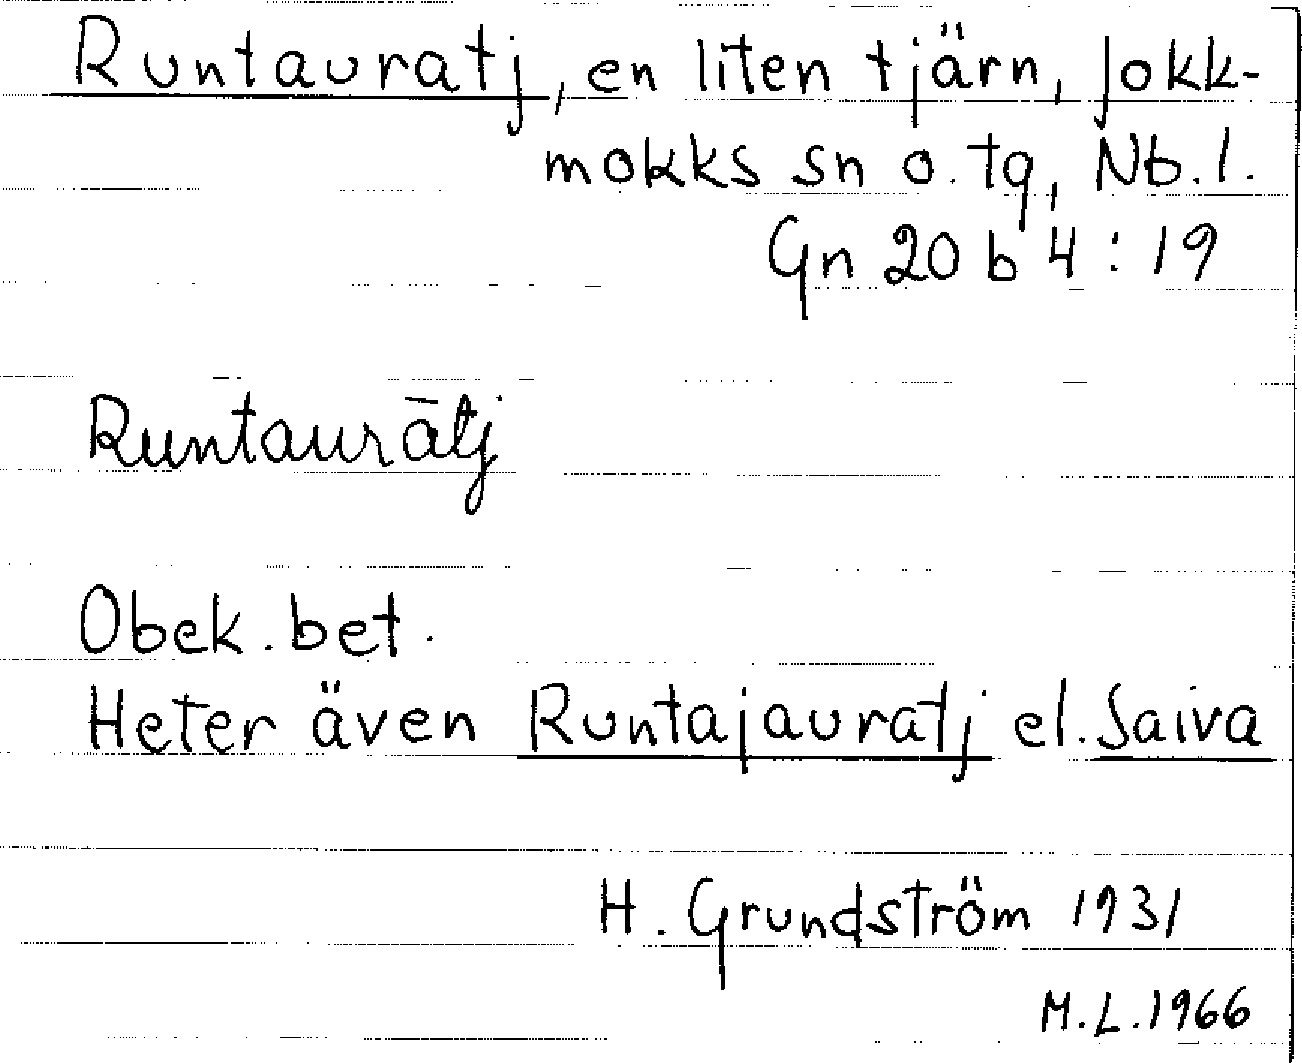 Runtauratj, en liten tjärn, Jokk-
mokks sn o. tg, Nb. l.
Gn 20 b 4 : 19
Runtaurātj
Obek. bet.
Heter även Runtajauratj el. Saiva
H. Grundström 1931
M.L. 1966